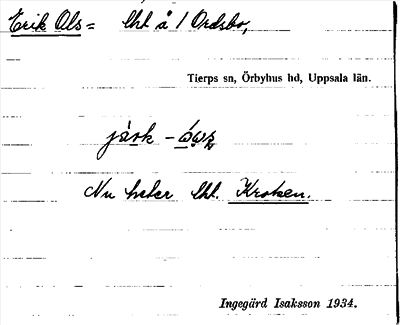 Erik Ols = lht å / Ordsbo,
Tierps sn, Örbyhus hd, Uppsala län.
Nu heter lht. Kroken.
Ingegärd Isaksson 1934.